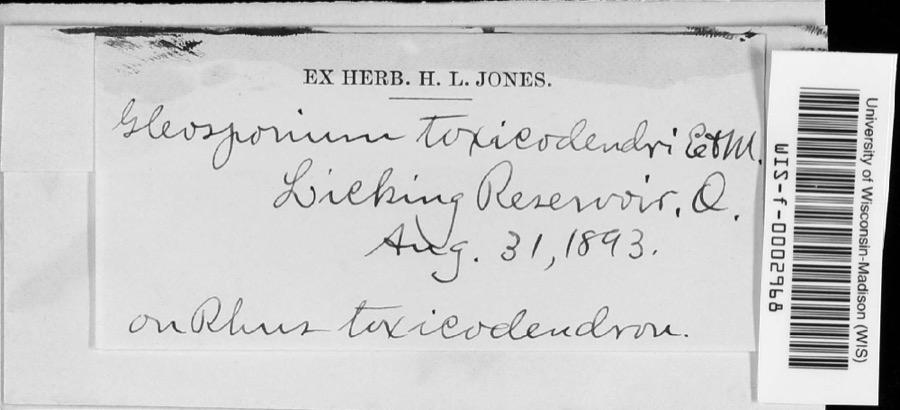 EX HERB. H. L. JONES.
Gleosporium toxicodendri E&M.
Licking Reservoir, O.
Aug. 31, 1893.
on Rhus toxicodendron.
University of Wisconsin-Madison (WIS)
WIS-f-0002968